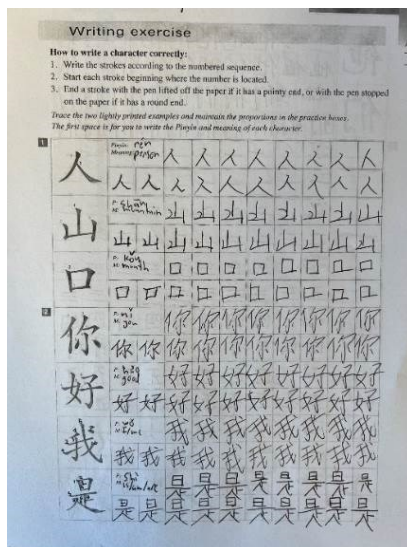 Writing exercise
How to write a character correctly:
1. Write the strokes according to the numbered sequence.
2. Start each stroke beginning where the number is located.
3. End a stroke with the pen lifted off the paper if it has a pointy end, or with the pen stopped
on the paper if it has a round end.
Trace the two lightly printed examples and maintain the proportions in the practice boxes.
The first space is for you to write the Pinyin and meaning of each character.
1
人 Pinyin: rén
Meaning: person 人 人 人 人 人 人 人 人
人 人 人 人 人 人 人 人 人 人
山 P: shān
M: mountain 山 山 山 山 山 山 山 山
山 山 山 山 山 山 山 山 山 山
口 P: kǒu
M: mouth 口 口 口 口 口 口 口 口
口 口 口 口 口 口 口 口 口 口
2
你 P: nǐ
M: you 你 你 你 你 你 你 你 你
你 你 你 你 你 你 你 你 你 你
好 P:
M: good 好 好 好 好 好 好 好 好
好 好 好 好 好 好 好 好 好 好
我 P: wǒ
M: I/me 我 我 我 我 我 我 我 我
我 我 我 我 我 我 我 我 我 我
是 P:
M: 是 是 是 是 是 是 是 是
是 是 是 是 是 是 是 是 是 是